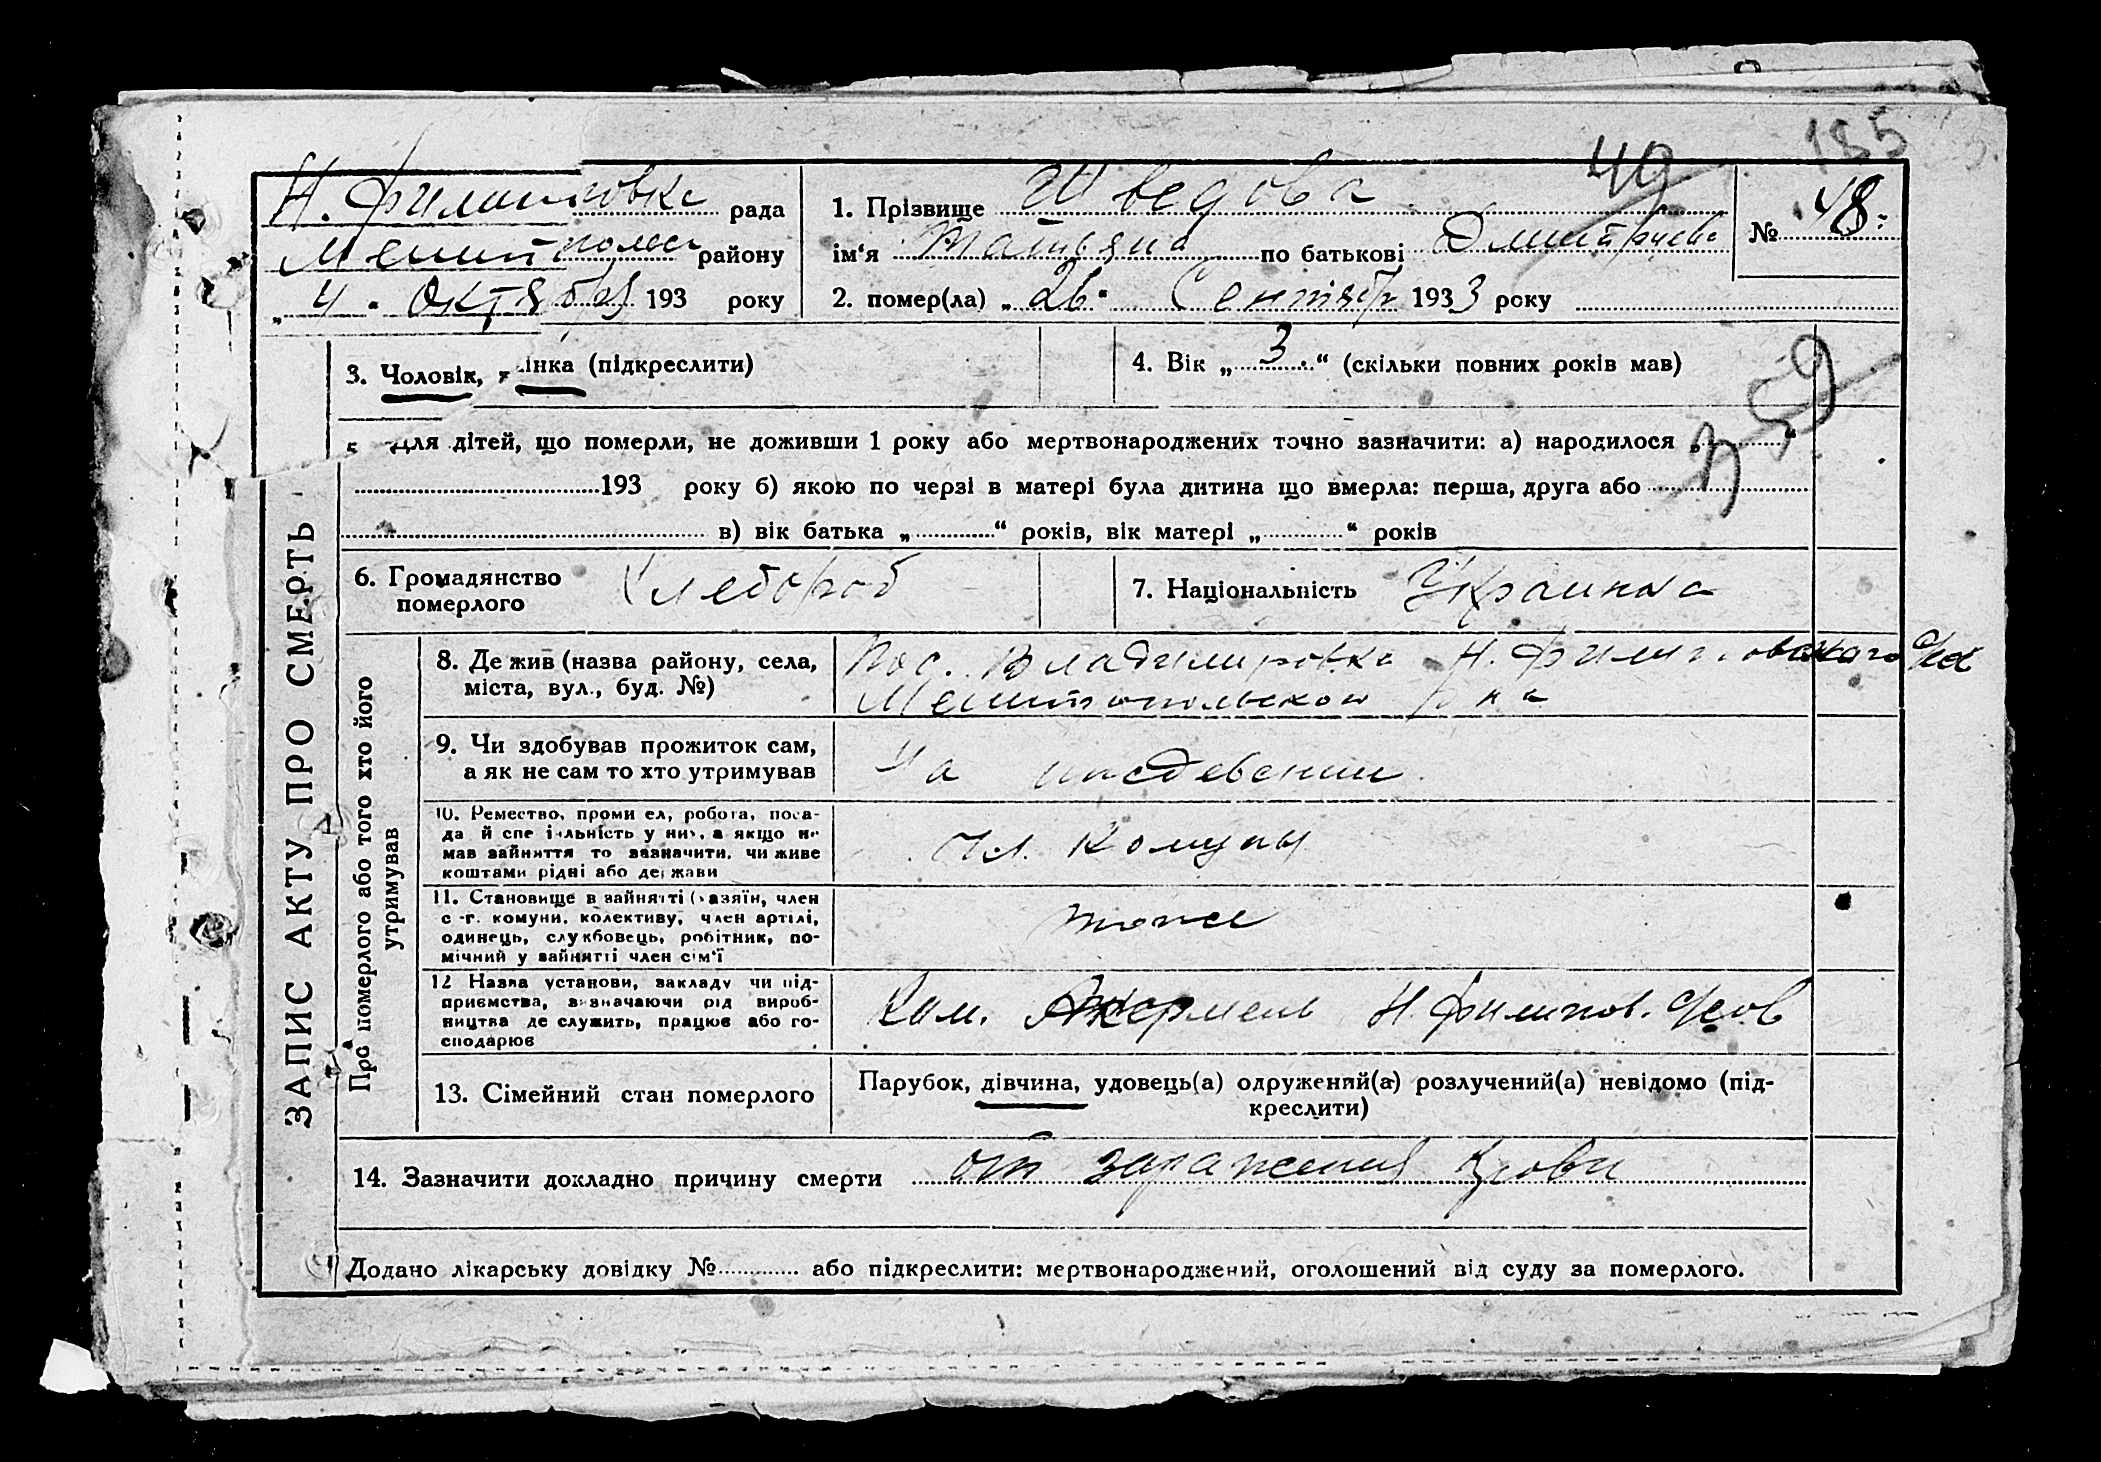 185
49
Н. Филипповка рада
Мелитополь району
„4“ Октября 193 року
1. Прізвище Шведова
ім‘я Татьяна по батькові Дмитриевна
2. помер(ла) „26“ Сентября 1933 року
№ 48
3. Чоловік, жінка (підкреслити)
4. Вік „3“ (скільки повних років мав)
359
5 Для дітей, що померли, не доживши 1 року або мертвонароджених точно зазначити: а) народилося „ “
193 року б) якою по черзі в матері була дитина що вмерла: перша, друга або
в) вік батька „ “ років, вік матері „ “ років
6. Громадянство
померлого
Хлебороб
7. Національність Украинка
ЗАПИС АКТУ ПРО СМЕРТЬ
Про померлого або того хто його
утримував
8. Де жив (назва району, села,
міста, вул., буд. №)
Пос. Владимировка Н. Филипповского
Мелитопольского р на
9. Чи здобував прожиток сам,
а як не сам то хто утримував
На иждевении
10. Ремество, промисел, робота, поса-
да й спеціяльність у них, а якщо не
мав зайняття то зазначити, чи живе
коштами рідні або держави
Чл. Комуны
11. Становище в зайнятті (хазяїн, член
с.-г. комуни, колективу, член артілі,
одинець, службовець, робітник, по-
мічний у зайнятті член сім‘ї
тоже
12 Назва установи, закладу чи під-
приємства, зазначаючи рід вироб-
ництва де служить, працює або го-
сподарює
Ком. Н. Филипов.
13. Сімейний стан померлого
Парубок, дівчина, удовець(а) одружений(а) розлучений(а) невідомо (під-
креслити)
14. Зазначити докладно причину смерти от заражения крови
Додано лікарську довідку № або підкреслити: мертвонароджений, оголошений від суду за померлого.